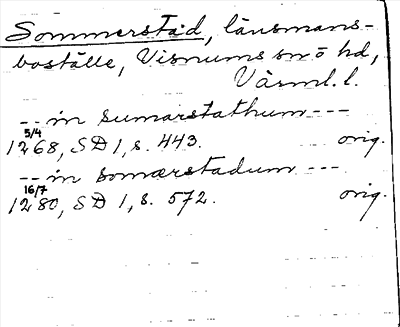 Sommerstad, länsmans-
boställe, Visnums smo hd,
Värml. l.
-- in sumarstathum ---
5/4
1268, SD 1, s. 443. orig.
-- in somærstadum ---
16/7
1280, SD 1, s. 572. orig.